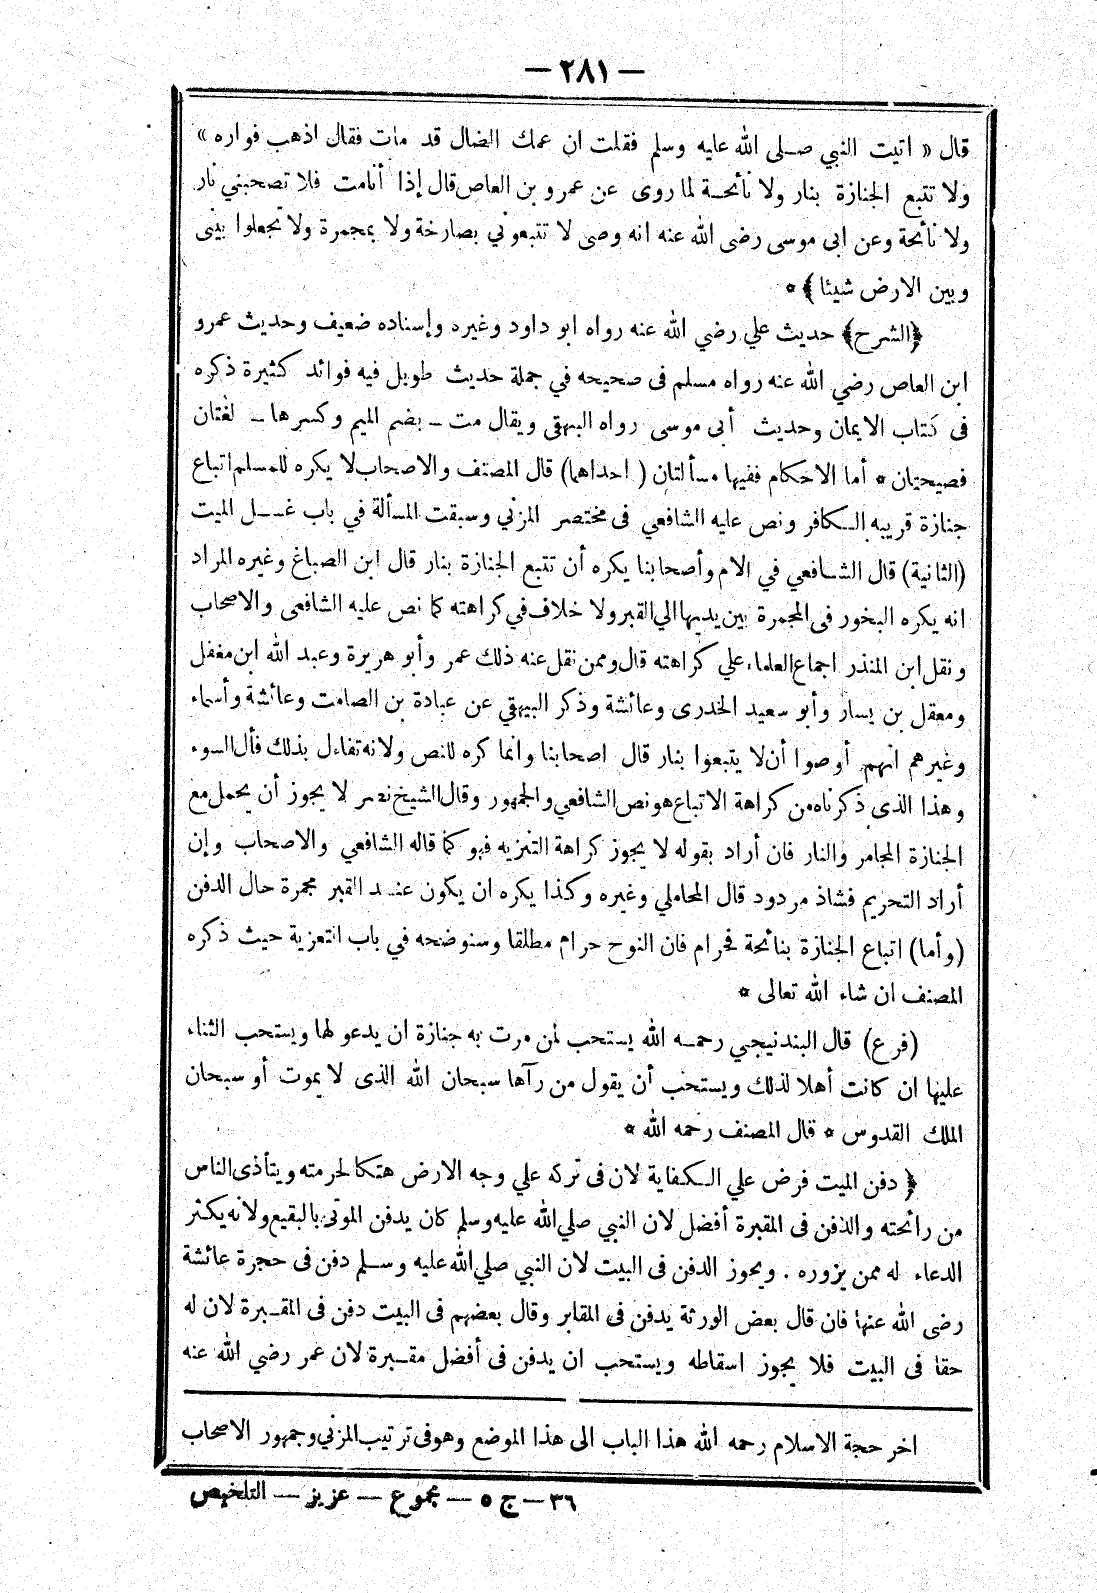 — ٢٨١ —
قال « اتيت النبي صلى الله عليه وسلم فقلت ان عمك الضال قد مات فقال اذهب فواره »
ولا تتبع الجنازة بنار ولا نائحة لما روى عن عمرو بن العاص قال إذا أنامت فلا تصحبني نار
ولا نائحة وعن ابى موسى رضى الله عنه انه وصى لا تتبعوني بصارخة ولا بمجمرة ولا تجعلوا بينى
وبين الارض شيئا ﴾ *
﴿الشرح﴾ حديث علي رضي الله عنه رواه ابو داود وغيره وإسناده ضعيف وحديث عمرو
ابن العاص رضي الله عنه رواه مسلم فى صحيحه في جملة حديث طويل فيه فوائد كثيرة ذكره
فى كتاب الايمان وحديث أبى موسى رواه البيهقى ويقال مت ـ بضم الميم وكسرها ـ لغتان
فصيحتان * أما الاحكام ففيها مسألتان (احداهما) قال المصنف والاصحاب لا يكره للمسلم اتباع
جنازة قريبه الكافر ونص عليه الشافعي فى مختصر المزني وسبقت المسألة في باب غسل الميت
(الثانية) قال الشافعي في الام وأصحابنا يكره أن تتبع الجنازة بنار قال ابن الصباغ وغيره المراد
انه يكره البخور فى المجمرة بين يديها الي القبر ولا خلاف في كراهته كما نص عليه الشافعى والاصحاب
ونقل ابن المنذر اجماع العلماء علي كراهته قال وممن نقل عنه ذلك عمر وأبو هريرة وعبد الله ابن مغفل
ومعقل بن يسار وأبو سعيد الخدرى وعائشة وذكر البيهقي عن عبادة بن الصامت وعائشة وأسماء
وغيرهم انهم أوصوا أن لا يتبعوا بنار قال اصحابنا وانما كره للنص ولانه تفاءل بذلك فأل السوء
وهذا الذى ذكرناه من كراهة الاتباع هو نص الشافعي والجمهور وقال الشيخ نصر لا يجوز أن يحمل مع
الجنازة المجامر والنار فان أراد بقوله لا يجوز كراهة التنزيه فهو كما قاله الشافعي والاصحاب وإن
أراد التحريم فشاذ مردود قال المحاملي وغيره وكذا يكره ان يكون عند القبر مجمرة حال الدفن
(وأما) اتباع الجنازة بنائحة فحرام فان النوح حرام مطلقا وسنوضحه في باب التعزية حيث ذكره
المصنف ان شاء الله تعالى *
(فرع) قال البندنيجي رحمه الله يستحب لمن مرت به جنازة ان يدعو لها ويستحب الثناء
عليها ان كانت أهلا لذلك ويستحب أن يقول من رآها سبحان الله الذى لا يموت أو سبحان
الملك القدوس * قال المصنف رحمه الله *
﴿ دفن الميت فرض علي الكفاية لان فى تركه علي وجه الارض هتكا لحرمته ويتأذى الناس
من رائحته والدفن فى المقبرة أفضل لان النبي صلي الله عليه وسلم كان يدفن الموتى بالبقيع ولانه يكثر
الدعاء له ممن يزوره . ويجوز الدفن فى البيت لان النبي صلي الله عليه وسلم دفن فى حجرة عائشة
رضى الله عنها فان قال بعض الورثة يدفن فى المقابر وقال بعضهم فى البيت دفن فى المقبرة لان له
حقا فى البيت فلا يجوز اسقاطه ويستحب ان يدفن فى أفضل مقبرة لان عمر رضي الله عنه
اخر حجة الاسلام رحمه الله هذا الباب الى هذا الموضع وهو فى ترتيب المزني وجمهور الاصحاب
٣٦ — ج ٥ — مجموع — عزيز — التلخيص